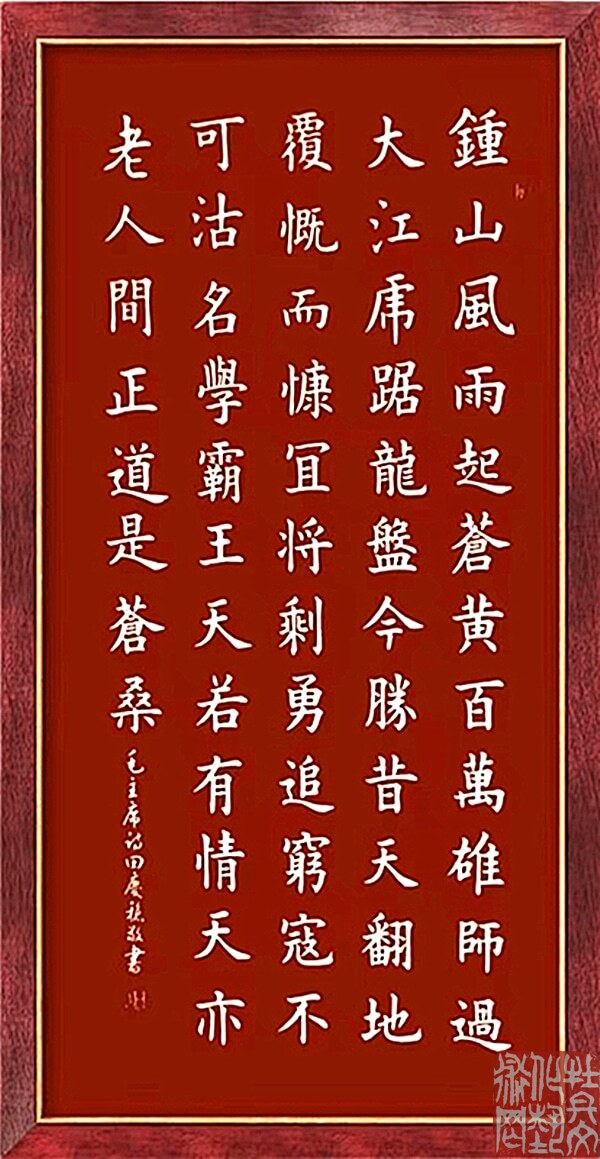 鍾山風雨起蒼黄百萬雄師過
大江虎踞龍盤今勝昔天翻地
覆慨而慷冝将剩勇追窮寇不
可沽名學霸王天若有情天亦
老人間正道是蒼桑
毛主席诗田慶敬書